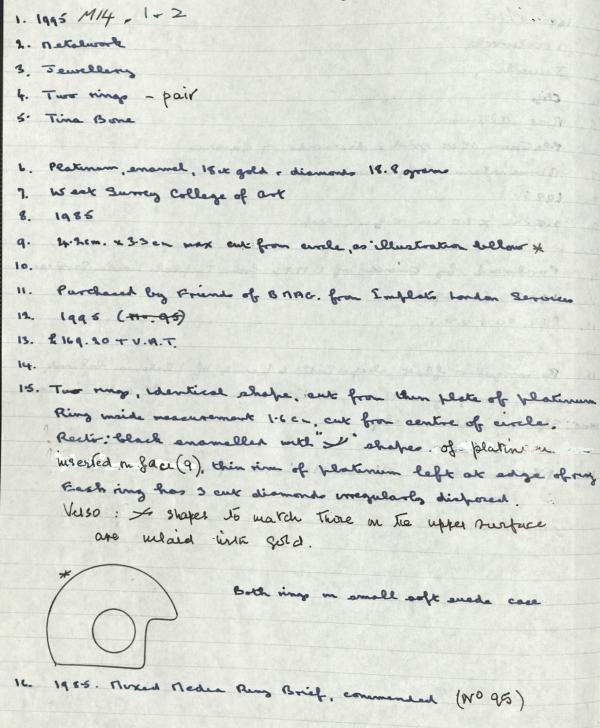 1. 1995 M14. 1+2
2. Metalwork
3. Jewellery
4. Two rings - pair
5. Tina Bone
6. Platinum, enamel, 18ct gold + diamonds 18.8 grams
7. West Surrey College of Art
8. 1985
9. 4.2cm. x 3.3cm max cut from circle, as illustration bellow *
10.
11. Purchased by Friends of BMAG. from Implats London Services
12. 1995 (No. 95)
13. £169.20 + V.A.T.
14.
15. Two rings, identical shape, cut from thin plate of platinum
Ring inside measurement 1.6cm, cut from centre of circle.
Recto: black enamelled with " " shapes of platinum
inserted in face (9), thin rim of platinum left at edge of ring
Each ring has 3 cut diamonds irregularly disposed.
Verso: shapes to match those on the upper surface
are inlaid with gold.
*
Both rings in small soft suede case
16. 1985. Mixed Media Ring Brief, commended (No 95)